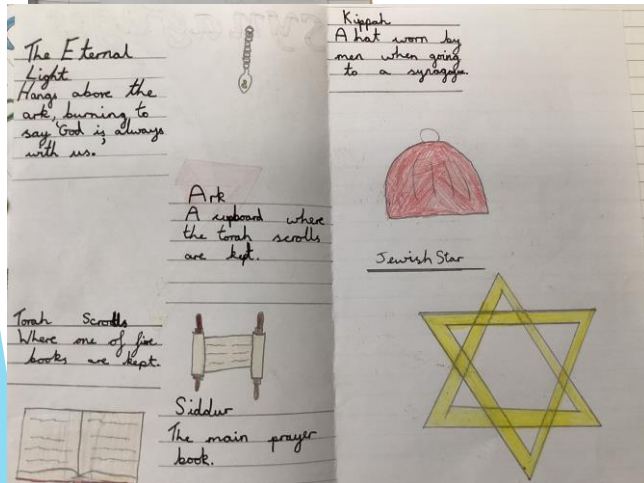 The Eternal
Light
Hangs above the
ark, burning to
say 'God is always
with us.'
Ark
A cupboard where
the torah scrolls
are kept.
Torah Scrolls
Where one of five
books are kept.
Siddur
The main prayer
book.
Kippah
A hat worn by
men when going
to a synagogue.
Jewish Star